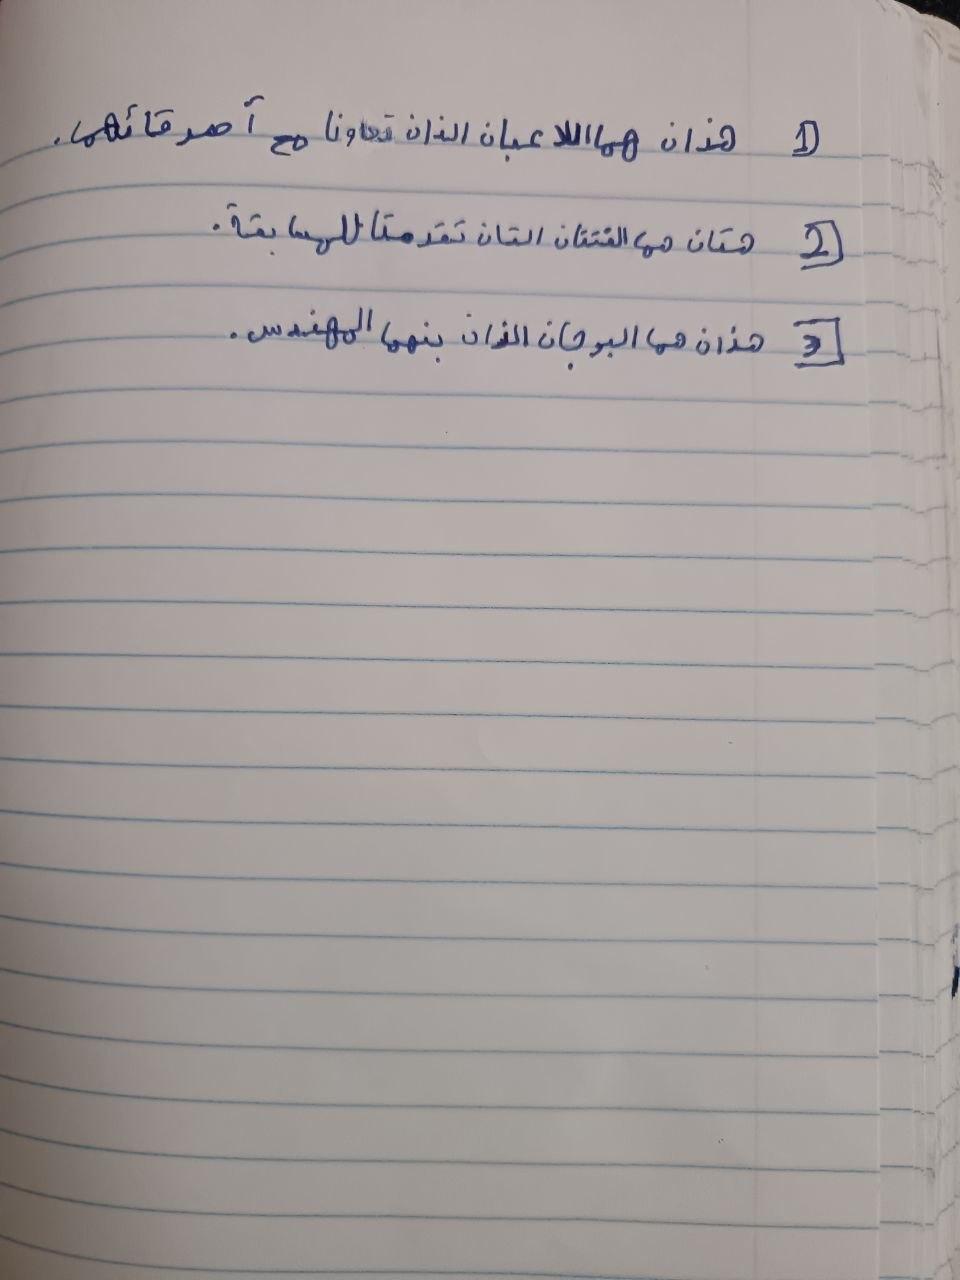 1) هذان هما اللاعبان الذان تعاونا مع أصدقائهما.
2) هتان هما الفتتان التان تقدمتا للمسابقة.
3) هذان هما البرجان الذان بنهما المهندس.